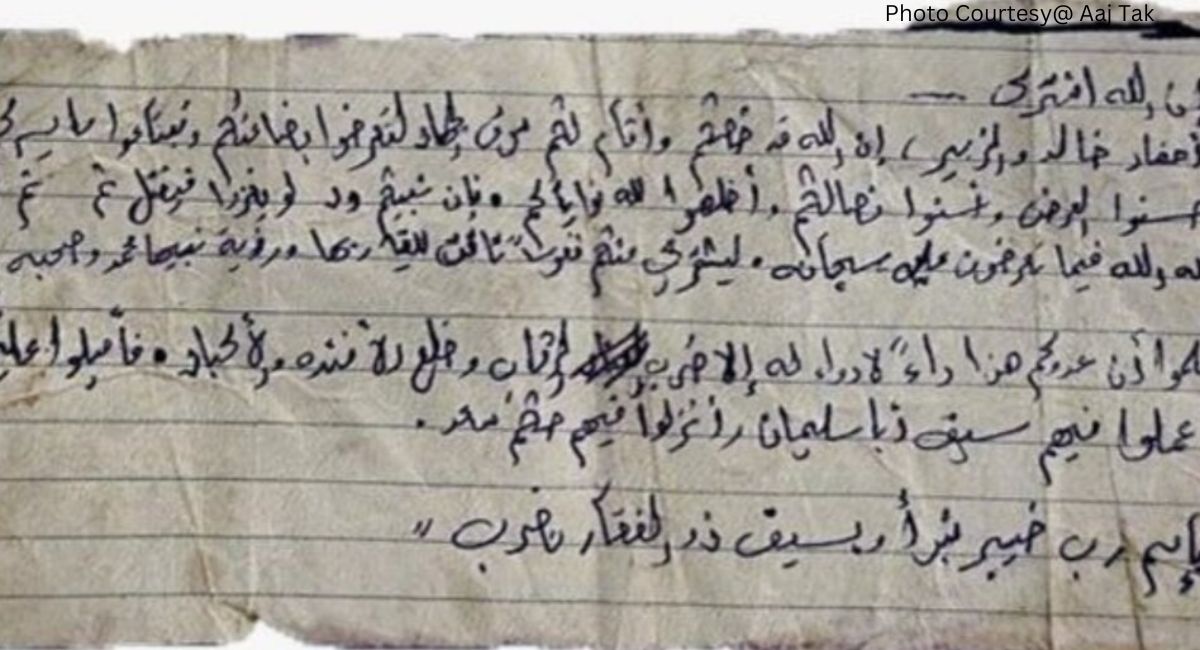 Photo Courtesy@ Aaj Tak
الله اشترى —
أحفاد خالد والزبير، إن الله قد خصكم وأقام لكم سوق جهاد لتعرضوا بضاعتكم وتبتاعوا
العرض وحسنوا نضالكم، أخلصوا لله نواياكم. فإن نبيكم ود لو يغزوا فيقتل ثم ثم
الله فيما تعرضون عليه سبحانه. ليشتري منكم نفوساً تاقت للقاء ربها ورؤية نبيها محمد وصحبه
أن عدوكم هذا داءً لا دواء له إلا ضرب الرقاب وخلع الأفئده والأكباد. فأقبلوا
عملوا فيهم سيف أبا سليمان وأنزلوا فيهم حكم سعد.
بإسم رب خيبر نبرأ وبسيف ذو الفقار نضرب"